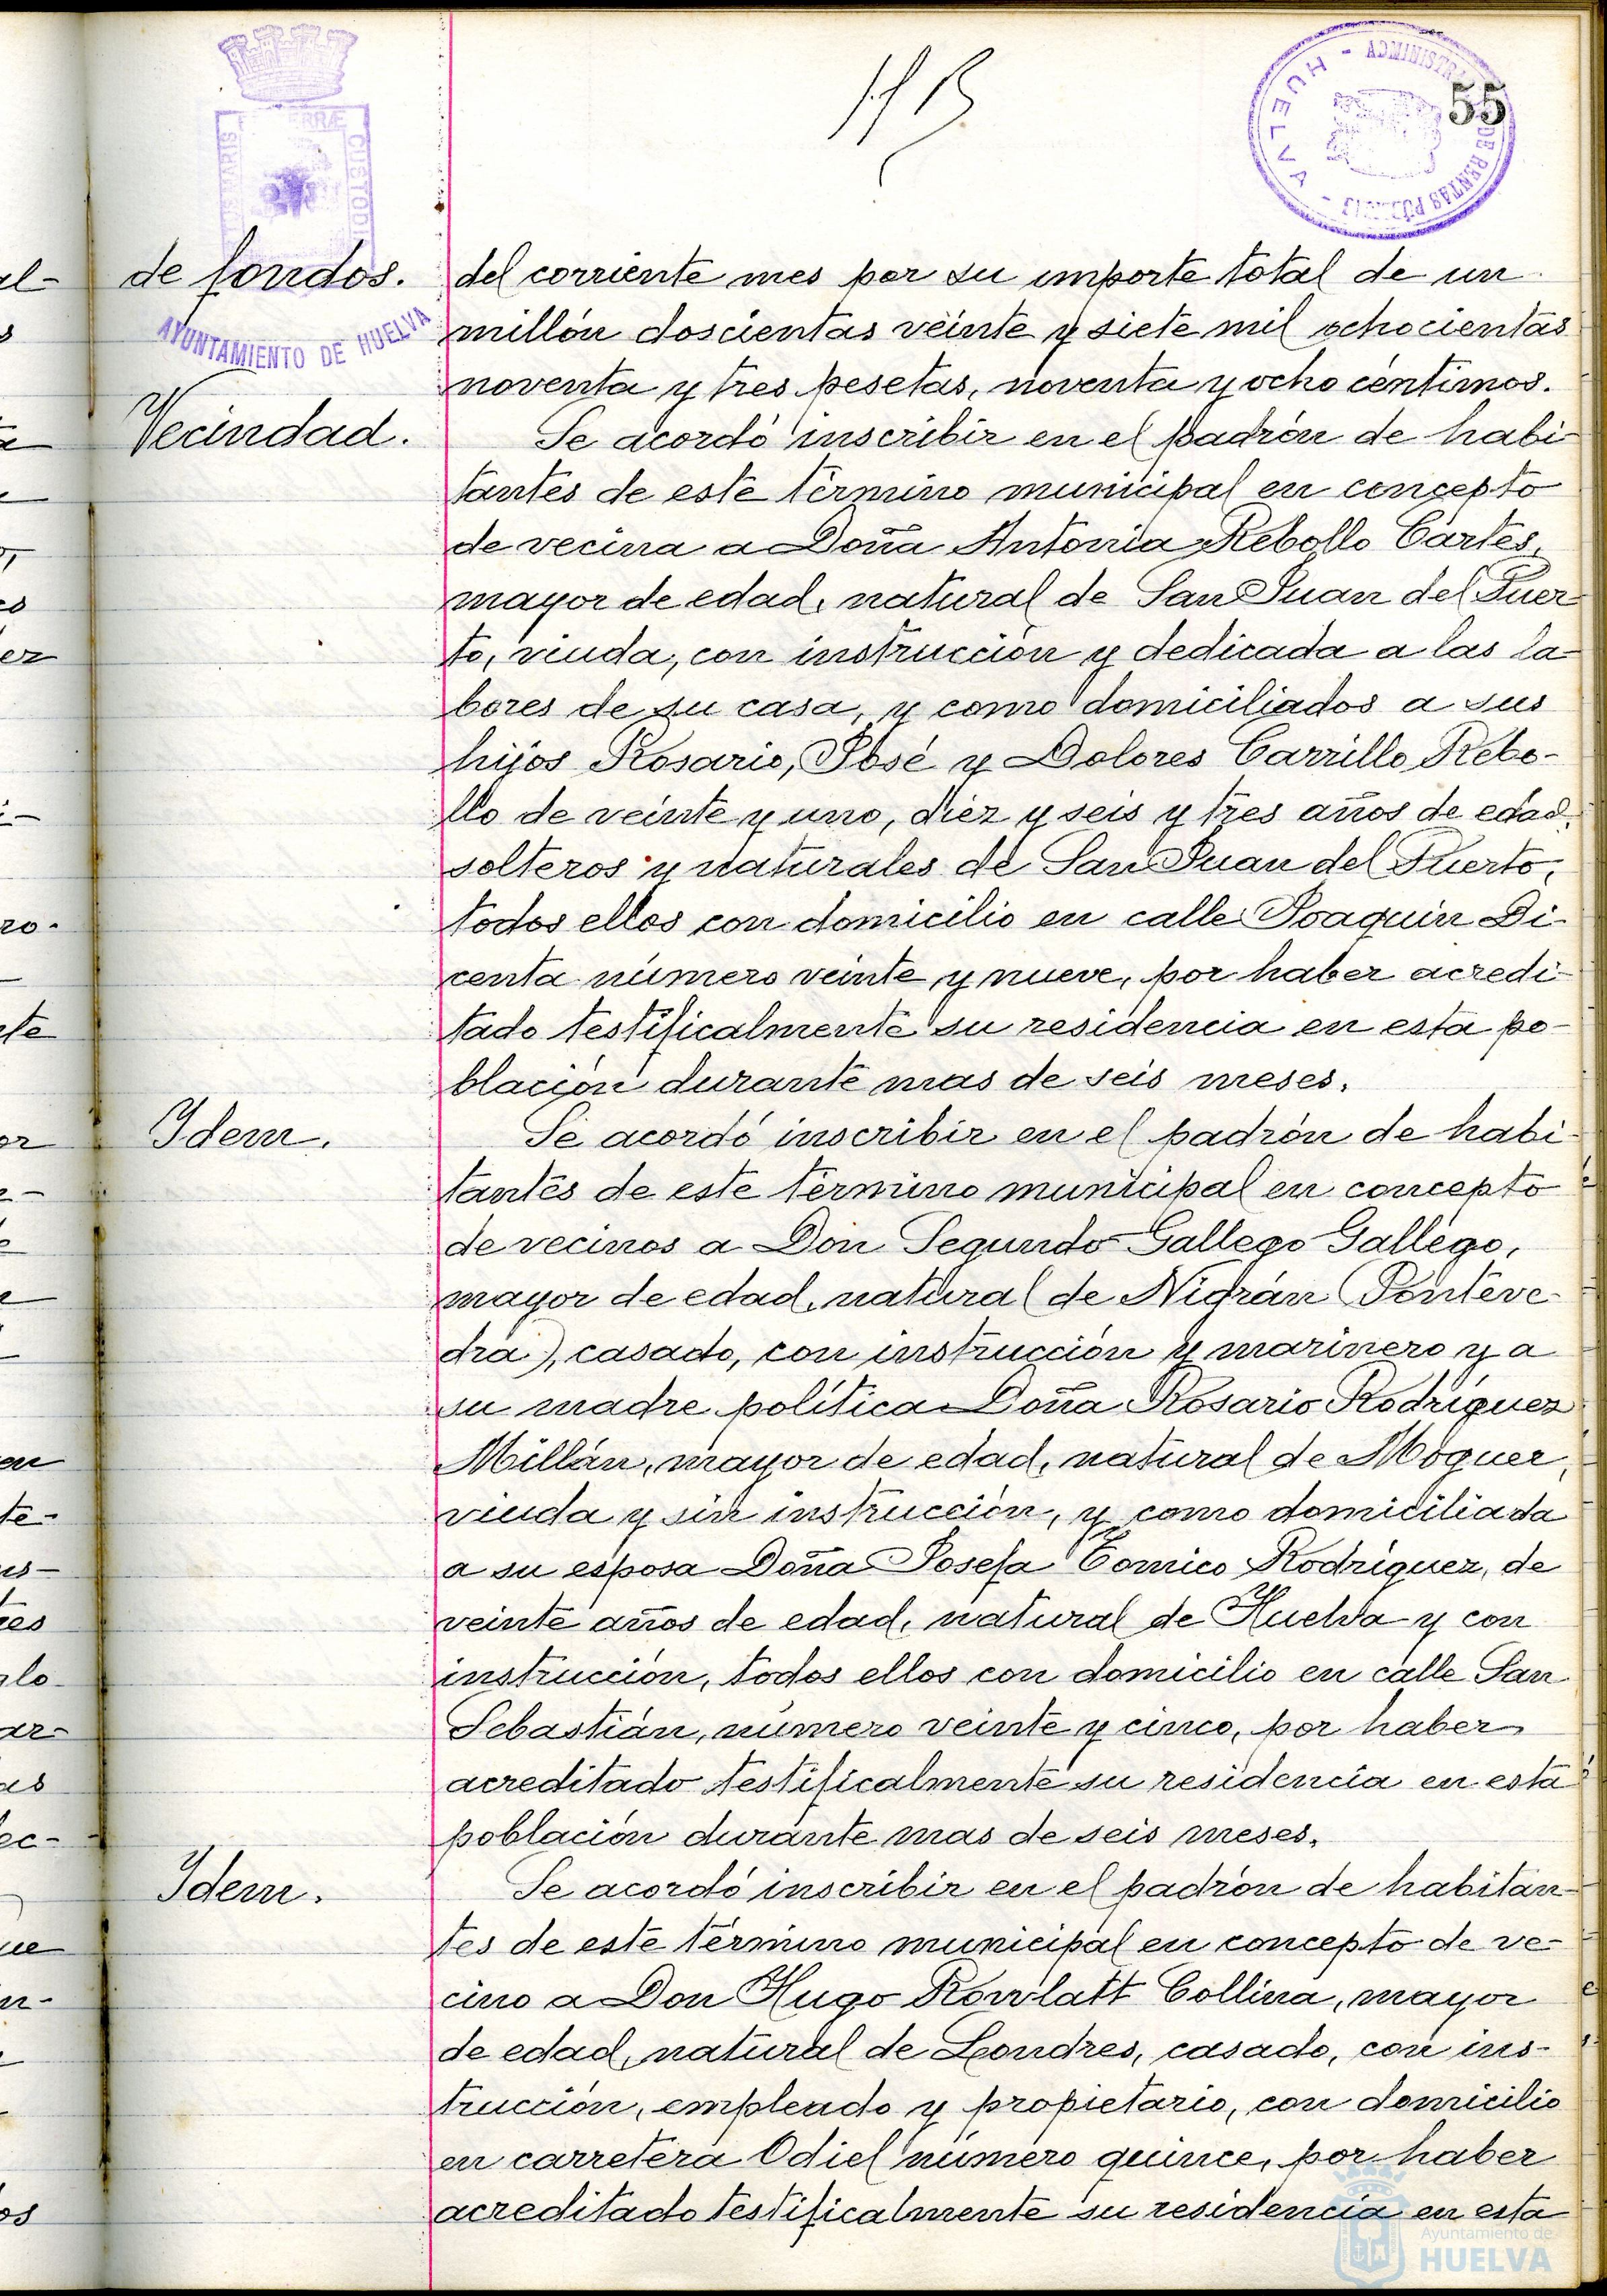 55
HUELVA - ADMINISTRA DE RENTAS PÚBLICAS -
CUSTODIA
AYUNTAMIENTO DE HUELVA
de fondos.
del corriente mes por su importe total de un
millón doscientas veinte y siete mil ochocientas
noventa y tres pesetas, noventa y ocho céntimos.
Vecindad.
Se acordó inscribir en el padrón de habi-
tantes de este término municipal en concepto
de vecina a Doña Antonia Rebollo Cartes,
mayor de edad, natural de San Juan del Puer-
to, viuda, con instrucción y dedicada a las la-
bores de su casa, y como domiciliados a sus
hijos Rosario, José y Dolores Carrillo Rebo-
llo de veinte y uno, diez y seis y tres años de edad,
solteros y naturales de San Juan del Puerto,
todos ellos con domicilio en calle Joaquin Di-
centa número veinte y nueve, por haber acredi-
tado testificalmente su residencia en esta po-
blación durante mas de seis meses.
Idem.
Se acordó inscribir en el padrón de habi-
tantes de este término municipal en concepto
de vecinos a Don Segundo Gallego Gallego,
mayor de edad, natural de Nigrán (Ponteve-
dra), casado, con instrucción y marinero y a
su madre política Doña Rosario Rodríguez
Millán, mayor de edad, natural de Moguer,
viuda y sin instrucción, y como domiciliada
a su esposa Doña Josefa Cornico Rodríguez, de
veinte años de edad, natural de Huelva y con
instrucción, todos ellos con domicilio en calle San
Sebastián, número veinte y cinco, por haber
acreditado testificalmente su residencia en esta
población durante mas de seis meses.
Idem.
Se acordó inscribir en el padrón de habitan-
tes de este término municipal en concepto de ve-
cino a Don Hugo Rowlatt Collina, mayor
de edad, natural de Londres, casado, con ins-
trucción, empleado y propietario, con domicilio
en carretera Odiel número quince, por haber
acreditado testificalmente su residencia en esta
Ayuntamiento de
HUELVA